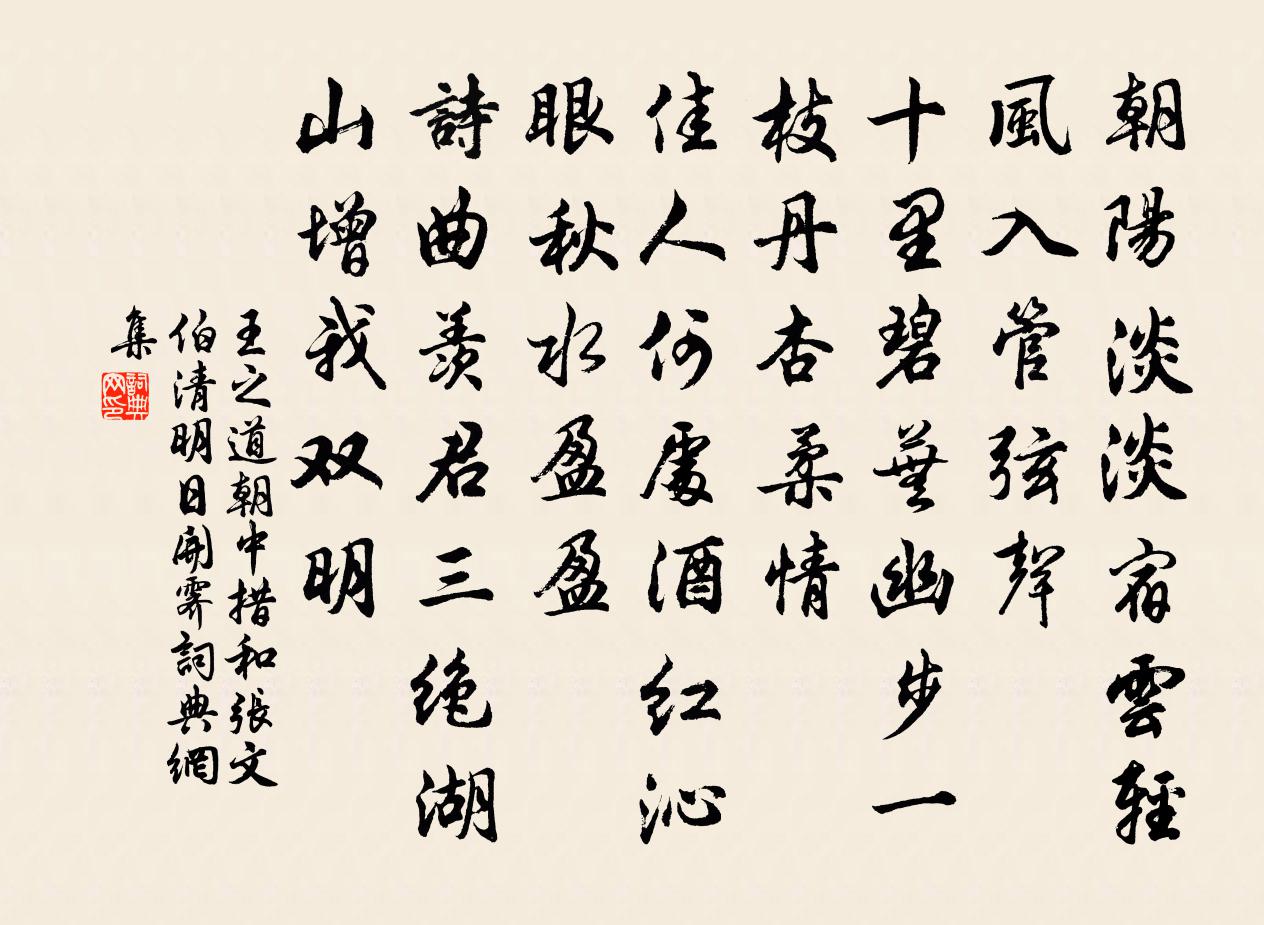 朝陽淡淡宿雲輕
風入管弦聲
十里碧蕪幽步一
枝丹杏柔情
佳人何處酒红沁
眼秋水盈盈
詩曲羨君三绝湖
山增我双明
王之道朝中措和張文
伯清明日開霽詞典網
集
詞典网印